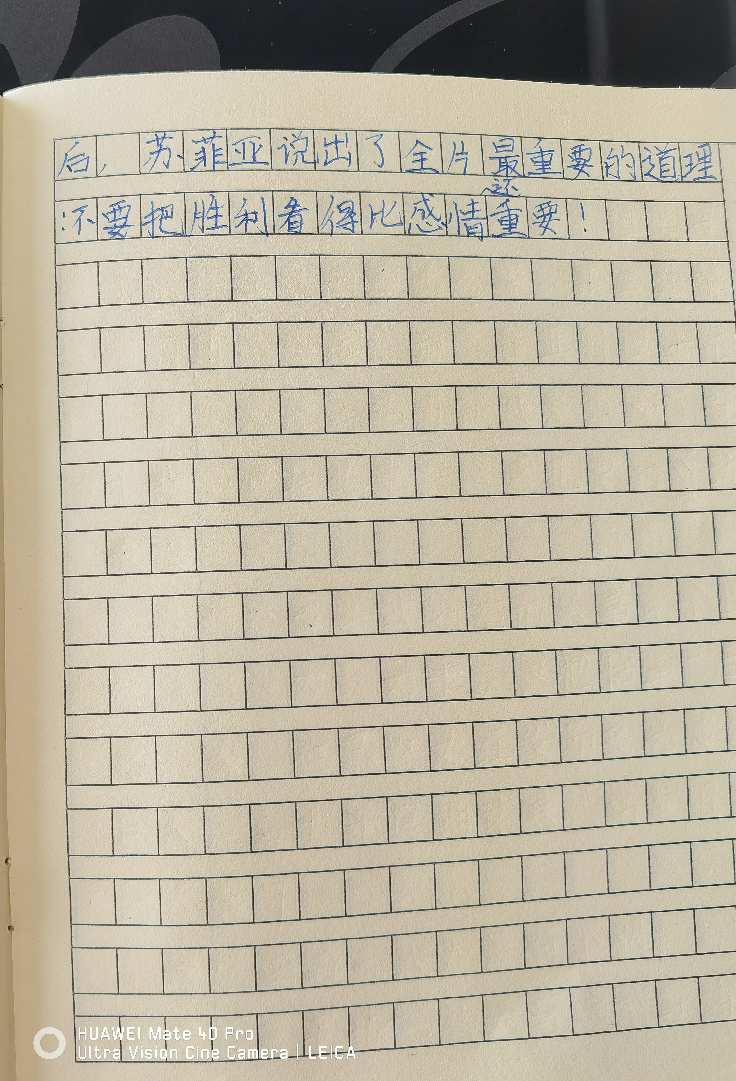 后，苏菲亚说出了全片最重要的道理
还
：不要把胜利看得比感情重要！
HUAWEI Mate 40 Pro
Ultra Vision Cine Camera | LEICA